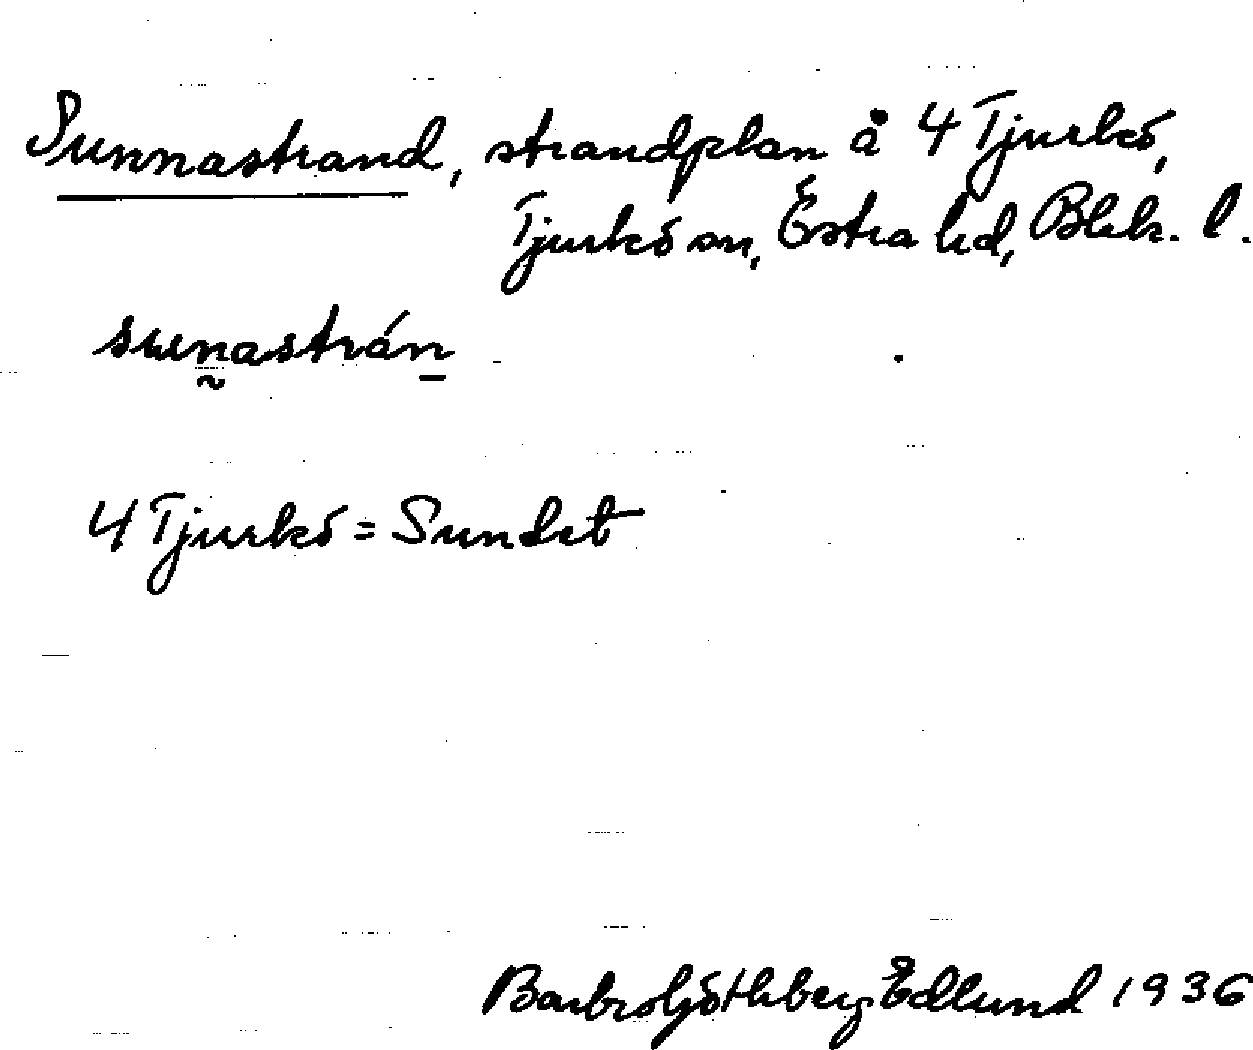 Sunnastrand, strandplan å 4 Tjurkö,
Tjurkö sn, Östra hd, Blek. l.
sunastrán
4 Tjurkö = Sundet
Barbro Göthberg Edlund 1936